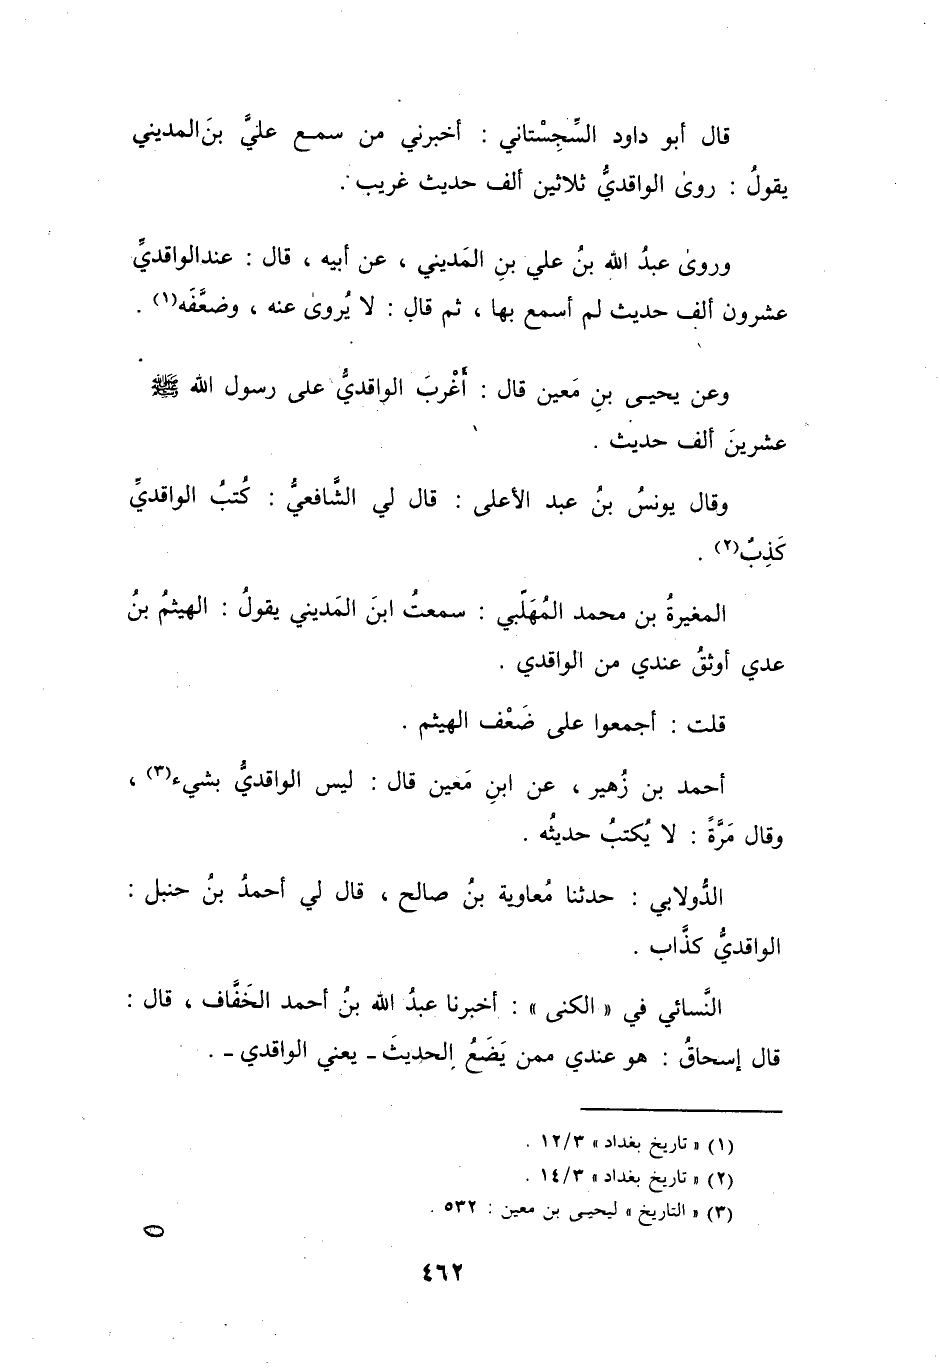 قال أبو داود السِّجِسْتاني : أخبرني من سمع عليَّ بنَ المديني
يقولُ : روىٰ الواقديُّ ثلاثين ألف حديث غريب .
وروىٰ عبدُ الله بنُ علي بنِ المَديني ، عن أبيه ، قال : عند الواقديِّ
عشرون ألف حديث لم أسمع بها ، ثم قال : لا يُروىٰ عنه ، وضعَّفَه(١) .
وعن يحيـى بنِ مَعين قال : أَغْربَ الواقديُّ على رسول الله ﷺ
عشرينَ ألف حديث .
وقال يونسُ بنُ عبد الأعلى : قال لي الشَّافعيُّ : كُتبُ الواقديِّ
كَذِبٌ(٢) .
المغيرةُ بن محمد المُهَلّبي : سمعتُ ابنَ المَديني يقولُ : الهيثمُ بنُ
عدي أوثقُ عندي من الواقدي .
قلت : أجمعوا على ضَعْف الهيثم .
أحمد بن زُهير ، عن ابنِ مَعين قال : ليس الواقديُّ بشيء(٣) ،
وقال مَرَّةً : لا يُكتبُ حديثُه .
الدُّولابي : حدثنا مُعاوية بنُ صالح ، قال لي أحمدُ بنُ حنبل :
الواقديُّ كذَّاب .
النَّسائي في « الكنى » : أخبرنا عبدُ الله بنُ أحمد الخَفَّاف ، قال :
قال إسحاقُ : هو عندي ممن يَضَعُ الحديثَ ـ يعني الواقدي ـ .
(١) « تاريخ بغداد » ١٢/٣ .
(٢) « تاريخ بغداد » ١٤/٣ .
(٣) « التاريخ » ليحيـى بن معين : ٥٣٢ .
٤٦٢